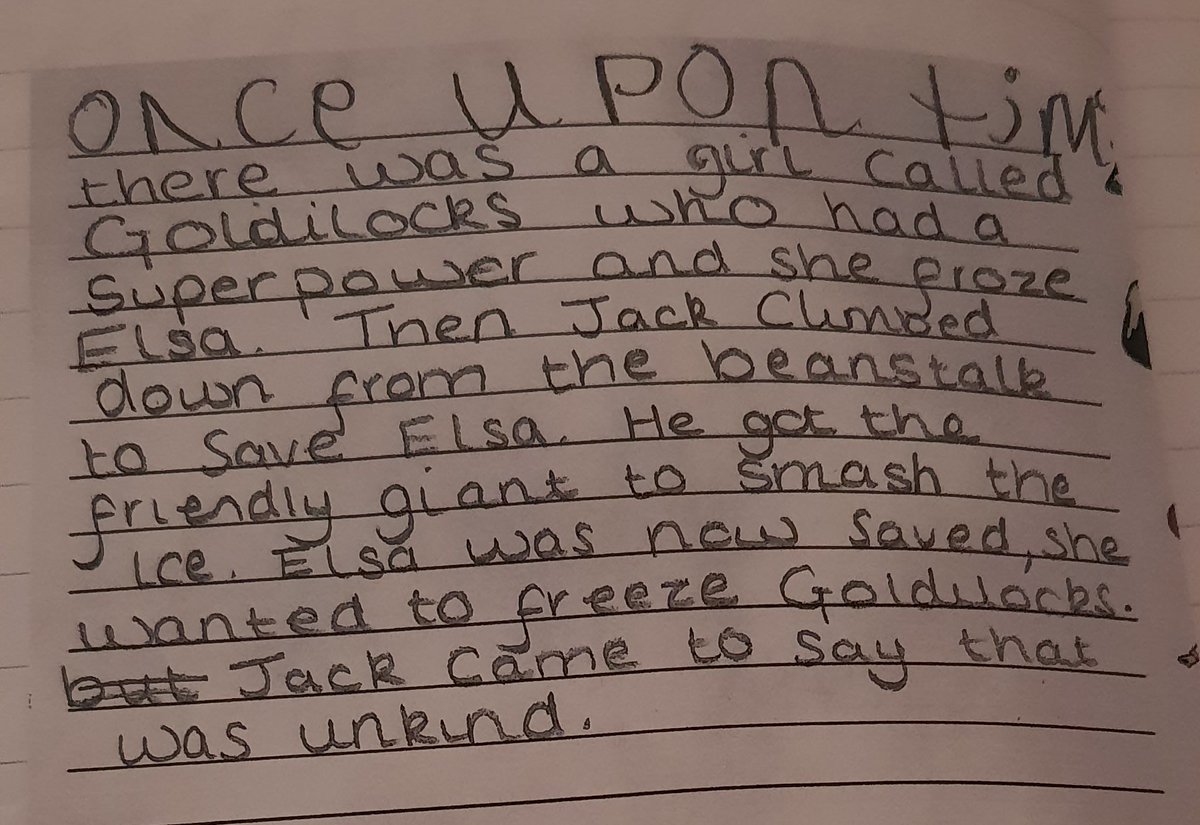 once upon tim
there was a girl called
Goldilocks who had a
superpower and she froze
Elsa. Then Jack Climbed
down from the beanstalk
to save Elsa. He got the
friendly giant to smash the
ice. Elsa was now saved, she
wanted to freeze Goldilocks.
but Jack came to say that
was unkind.